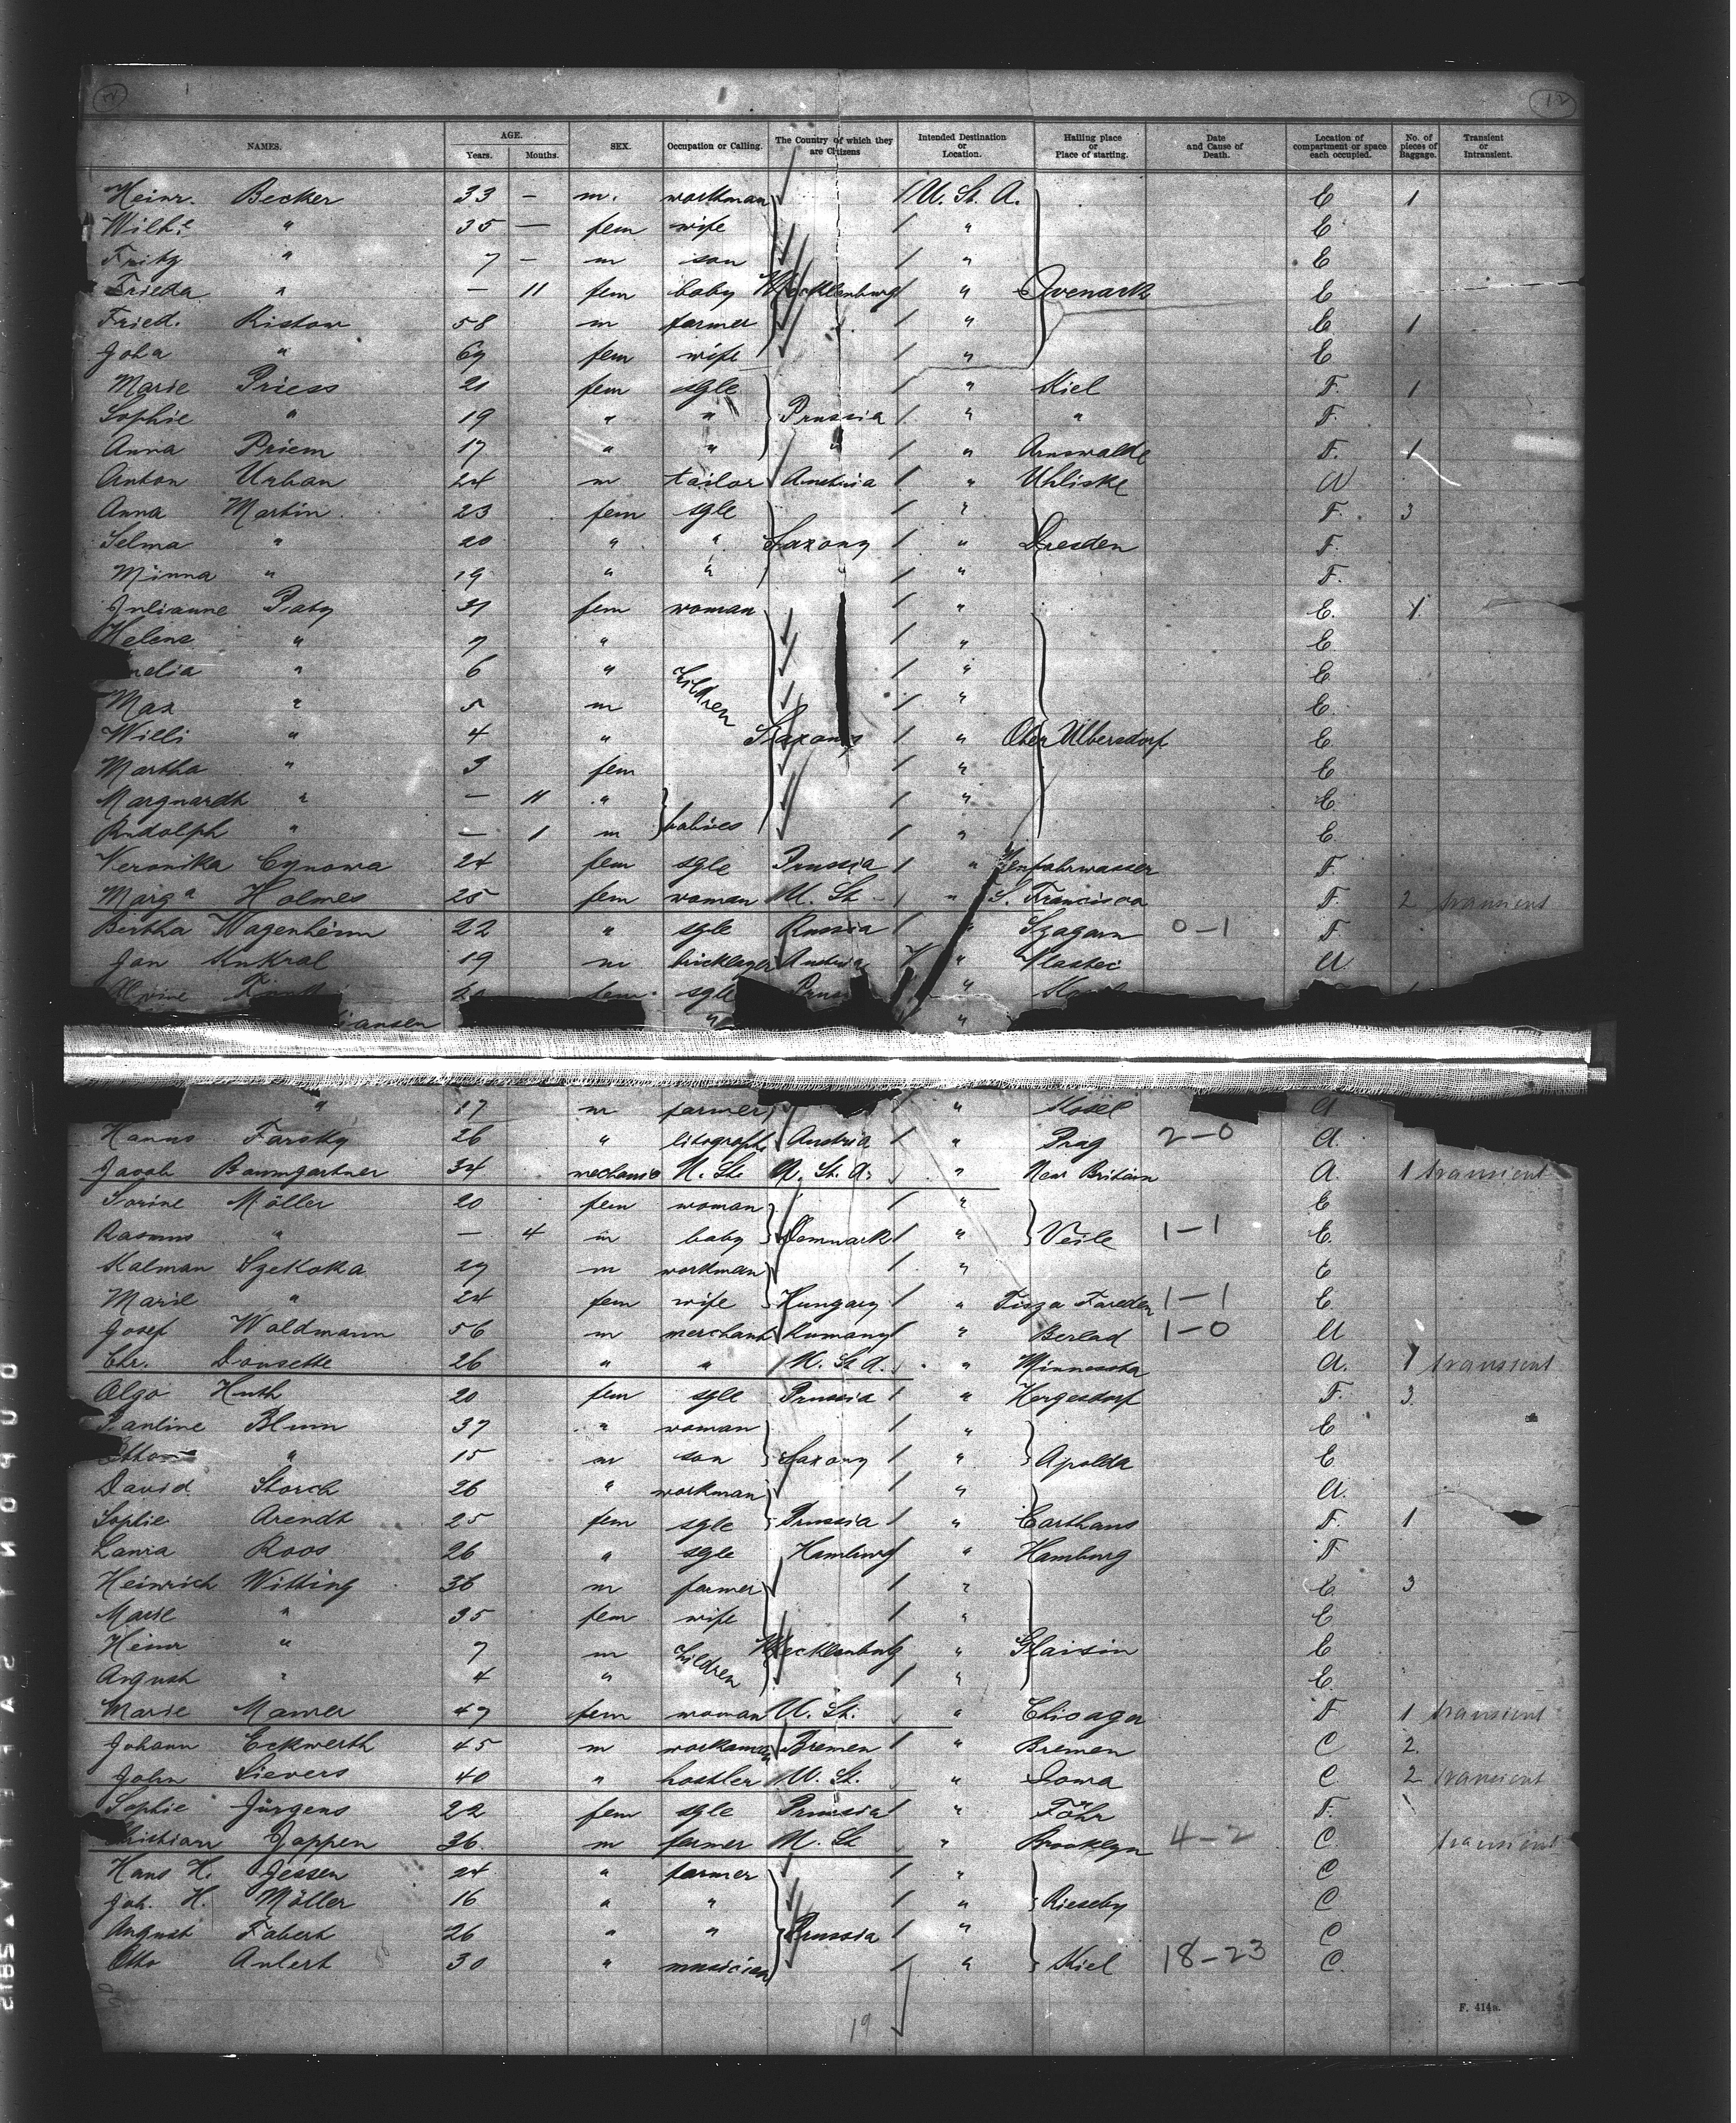 12
NAMES. AGE. Years. Months. SEX. Occupation or Calling. The Country of which they are Citizens Intended Destination or Location. Hailing place or Place of starting. Date and Cause of Death. Location of compartment or space each occupied. No. of pieces of Baggage. Transient or Intransient.
Heinr. Becker 33 — m. workman U. St. A. E 1
Wilh. " 35 — fem wife " E
Fritz " 7 — m son " E
Frieda " — 11 fem baby Mecklenburg " E
Fried. Ristow 58 m farmer " E 1
Joha " fem wife " E
Marie Priess 21 fem sgle " Kiel F. 1
Sophie " 19 " " Prussia " " F.
Anna Priem 17 " " " " Arnswalde F. 1
Anton Urban 24 m tailor Austria " Uhliske
Anna Martin 23 fem sgle " F. 3
Selma " 20 " " Saxony " Dresden F.
Minna " 19 " " " " F.
Julianne 31 fem woman " E. 1
Helene " 7 " " E
" 6 " children " E
Max " 5 m " E
Willi " 4 " Saxony " Ober Ulbersdorf E
Martha " 3 fem " E
Marguardt " — 11 " " E
Rudolph " — 1 m babies " E.
Veronika Cynowa 24 fem sgle Prussia " F.
Marg a Holmes 25 fem woman U. St. " S. Francisco F. 2 transient
Bertha Wagenheim 22 " sgle Russia " Szagarn 0-1 F
Jan Kukral 19 m bricklayer Austria " Vlastec A
fem. sgle "
iansen " "
" 17 m farmer " A
Hanus Farsky 26 " litograph Austria " Prag 2-0 A.
Jacob Baumgartner 34 mechanic U. St. U. St. A. " New Britain A. 1 transient
Sorine Möller 20 fem woman " E
Rasmus " — 4 m baby Denmark " Veile 1-1 E.
Kalman Szekoka 29 m workman " E
Marie " 24 fem wife Hungary " Tisza Fareden 1-1 E.
Josef Waldmann 56 m merchant Rumany " Berlad 1-0 A
Chr. Dousette 26 " " U. St. A. " Minnesota A. 1 transient
Olga Huth 20 fem sgle Prussia " Hergesdorf F. 3
Pauline Blum 37 " woman " E
Otto " 15 m son Saxony " Apolda E
David Storch 26 " workman " A.
Sophie Arendt 25 fem sgle Prussia " Carthaus F. 1
Laura Roos 26 " sgle Hamburg " Hamburg F
Heinrich Witting 36 m farmer " E 3
Marie " 35 fem wife " E
Heinr " 7 m children Mecklenburg " Glaisin E
August " 4 " " E.
Marie Mamer 47 fem woman U. St. " Chicago F 1 transient
Johann Eckwerth 45 m workman Bremen " Bremen C 2.
John Sievers 40 " hostler U. St. " Iowa C. 2 transient
Sophie Jürgens 22 fem sgle Prussia " Föhr F.
Christian Jappen 36 m farmer U. St. " Brooklyn 4-2 C. transient
Hans H. Jessen 24 " farmer " C
Joh. H. Möller 16 " " " Rieseby C
August Fabert 26 " " Prussia " C
Otto Anlert 30 " musician " Kiel 18-23 C.
19
F. 414a.